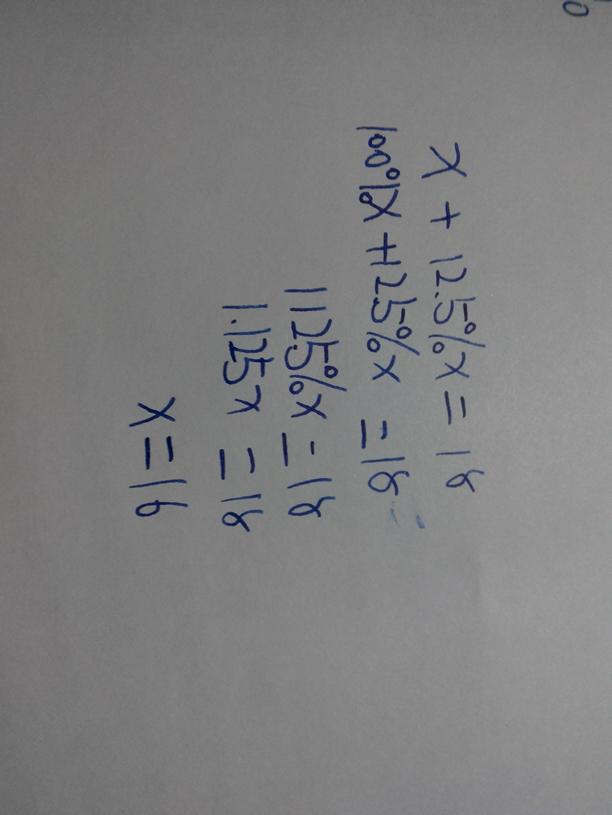 x + 12.5%x = 18
100%x + 12.5%x = 18
112.5%x = 18
1.125x = 18
x = 16